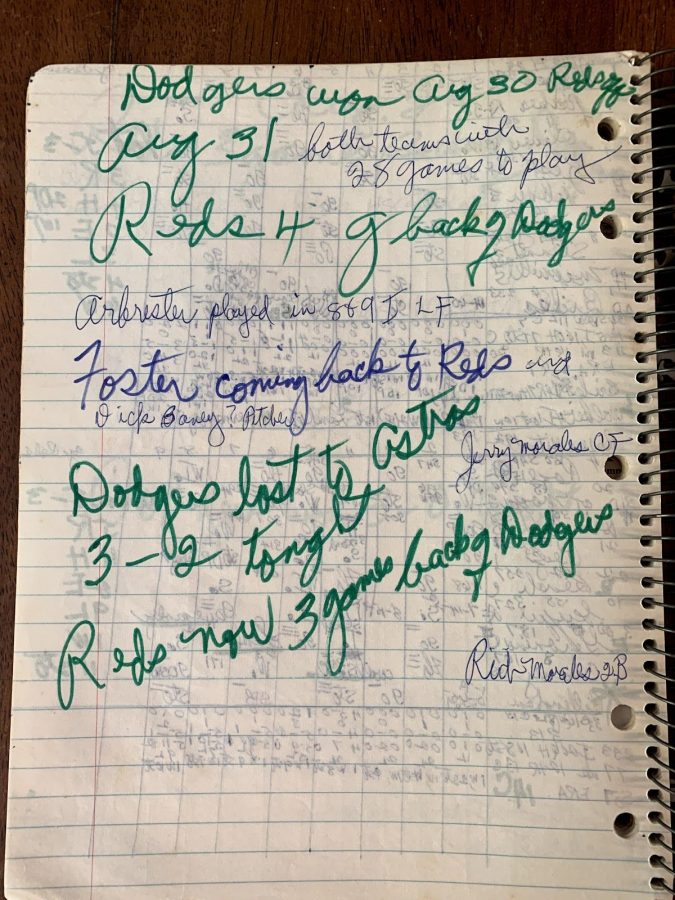 Dodgers won Aug 30 Reds
Aug 31 both teams with
28 games to play
Reds 4 g back of Dodgers
Arbrester played in 8 & 9 I LF
Foster coming back to Reds and
Dick Baney? Pitcher
Jerry Morales CF
Dodgers lost to Astros
3-2 tonght
Reds now 3 games back of Dodgers
Rich Morales 2B